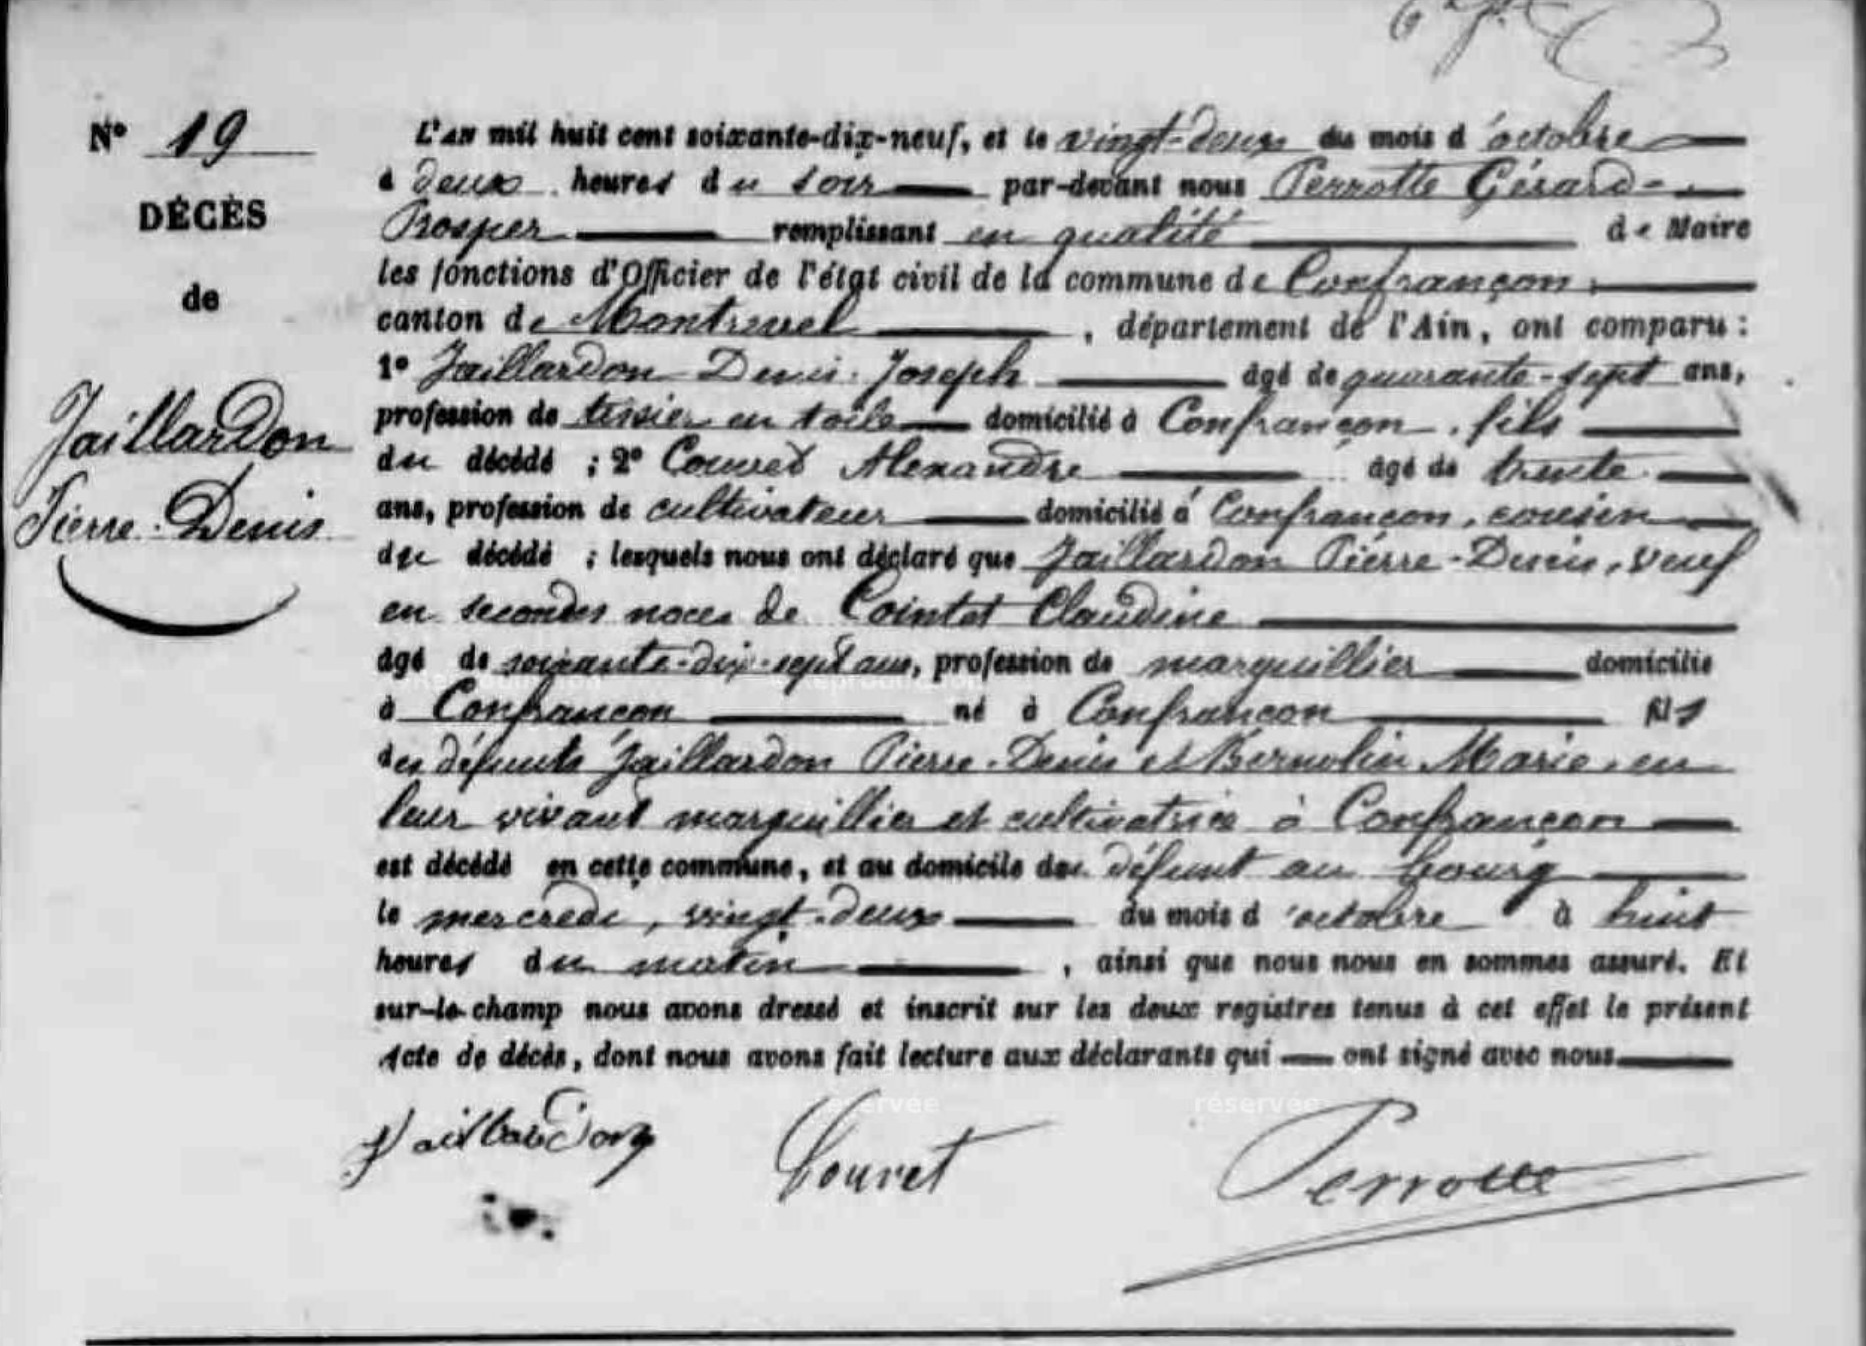 N° 19
DÉCÈS
de
Jaillardon
Pierre-Denis
L'an mil huit cent soixante-dix-neuf, et le vingt-deux du mois d'octobre
à deux heures du soir par-devant nous Perrotte Gérard-
Prosper remplissant en qualité de Maire
les fonctions d'Officier de l'état civil de la commune de Confrançon,
canton de Montrevel, département de l'Ain, ont comparu :
1° Jaillardon Denis-Joseph âgé de quarante-sept ans,
profession de tissier en toile domicilié à Confrançon, fils
du décédé ; 2° Couvet Alexandre âgé de trente
ans, profession de cultivateur domicilié à Confrançon, cousin
du décédé ; lesquels nous ont déclaré que Jaillardon Pierre-Denis, veuf
en secondes noces de Cointet Claudine
âgé de soixante-dix-sept ans, profession de marguillier domicilié
à Confrançon né à Confrançon fils
des défunts Jaillardon Pierre-Denis et Bernolin Marie, en
leur vivant marguillier et cultivatrice à Confrançon
est décédé en cette commune, et au domicile du défunt au bourg
le mercredi, vingt-deux du mois d'octobre à huit
heures du matin, ainsi que nous nous en sommes assuré. Et
sur-le-champ nous avons dressé et inscrit sur les deux registres tenus à cet effet le présent
Acte de décès, dont nous avons fait lecture aux déclarants qui ont signé avec nous
Jaillardon Couvet Perrotte
réservée réservée